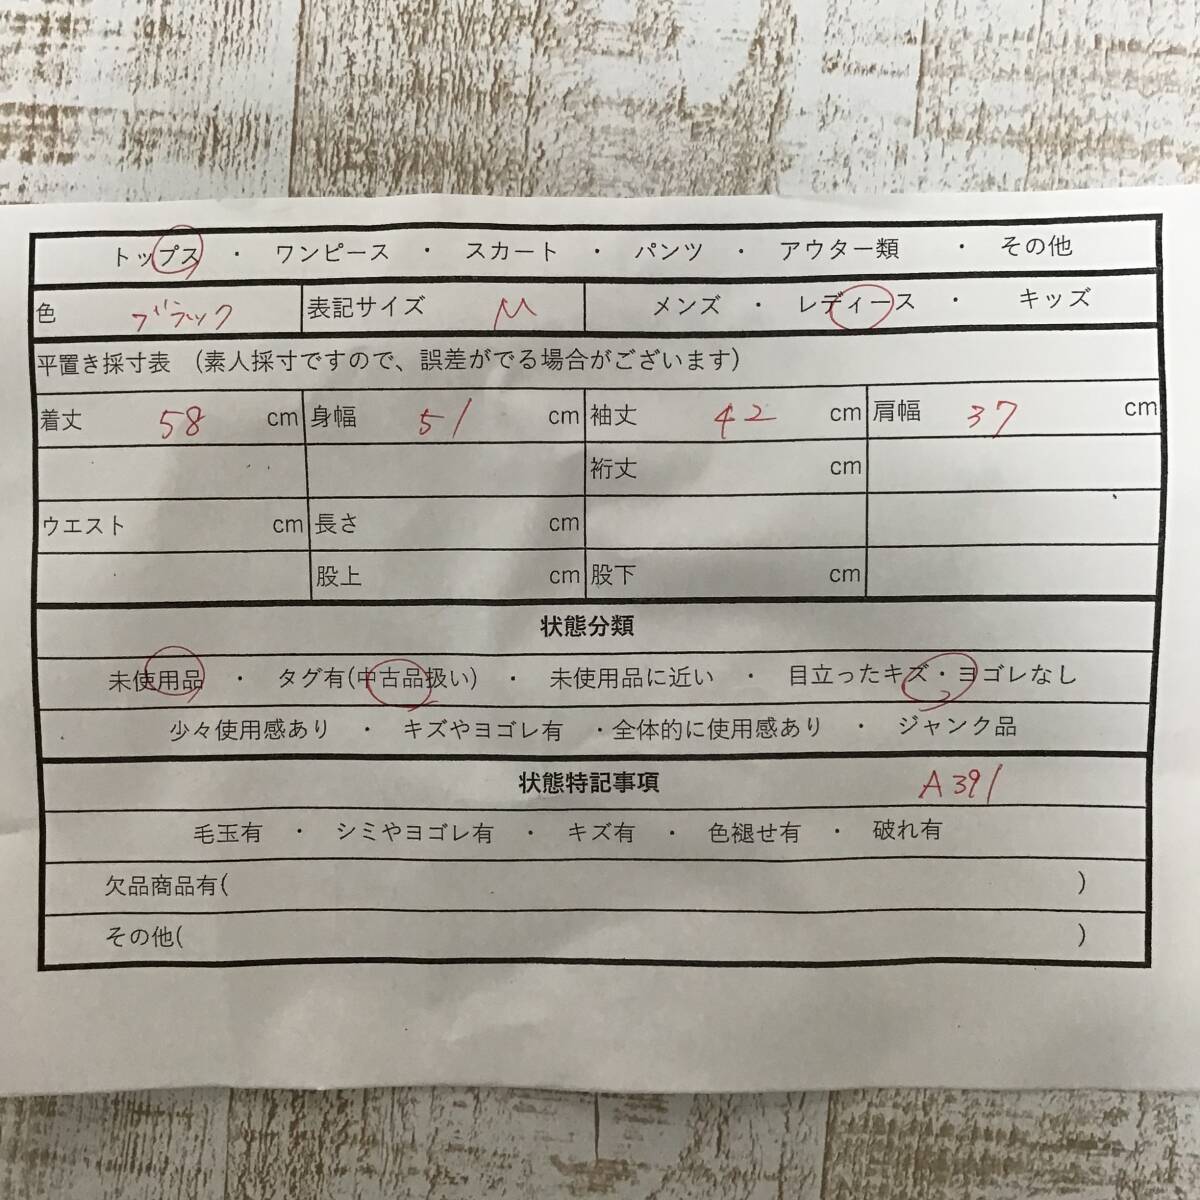 トップス ・ ワンピース ・ スカート ・ パンツ ・ アウター類 ・ その他
色 ブラック 表記サイズ M メンズ ・ レディース ・ キッズ
平置き採寸表 (素人採寸ですので、誤差がでる場合がございます)
着丈 58 cm 身幅 51 cm 袖丈 42 cm 肩幅 37 cm
裄丈 cm
ウエスト cm 長さ cm
股上 cm 股下 cm
状態分類
未使用品 ・ タグ有(中古品扱い) ・ 未使用品に近い ・ 目立ったキズ・ヨゴレなし
少々使用感あり ・ キズやヨゴレ有 ・全体的に使用感あり ・ ジャンク品
状態特記事項 A391
毛玉有 ・ シミやヨゴレ有 ・ キズ有 ・ 色褪せ有 ・ 破れ有
欠品商品有( )
その他( )